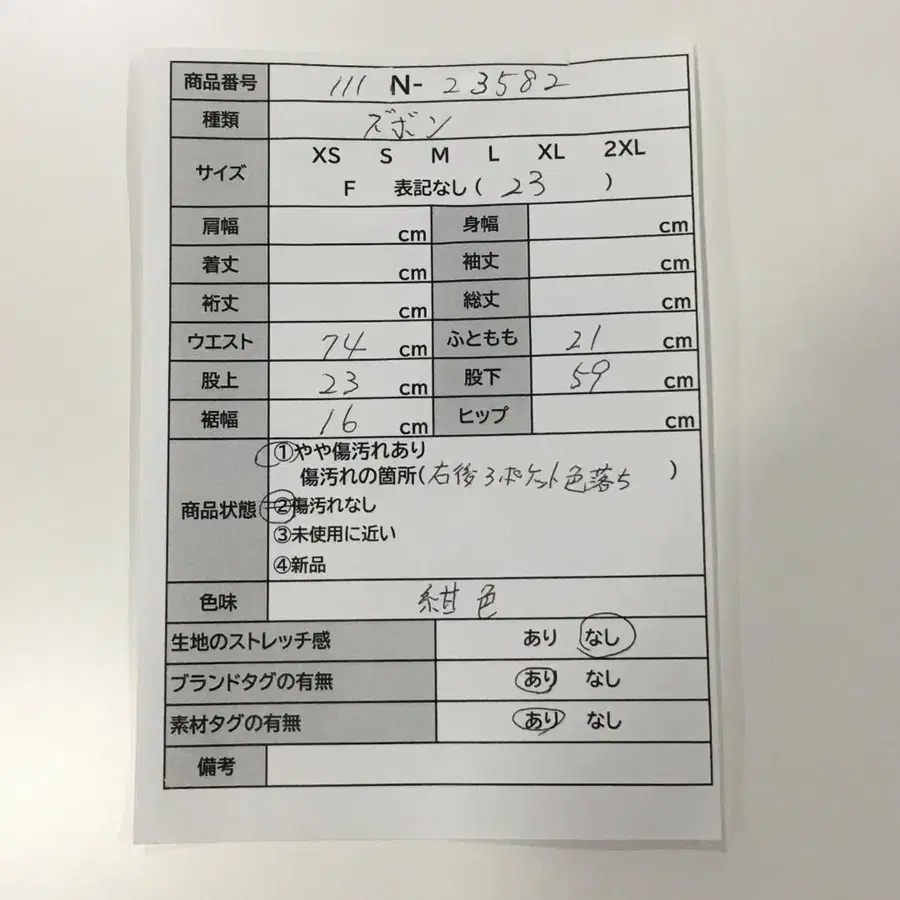 商品番号 111 N- 23582
種類 ズボン
サイズ XS S M L XL 2XL
F 表記なし ( 23 )
肩幅 cm 身幅 cm
着丈 cm 袖丈 cm
裄丈 cm 総丈 cm
ウエスト 74 cm ふともも 21 cm
股上 23 cm 股下 59 cm
裾幅 16 cm ヒップ cm
①やや傷汚れあり
傷汚れの箇所(右後ろポケット色落ち )
商品状態 ②傷汚れなし
③未使用に近い
④新品
色味 紺色
生地のストレッチ感 あり なし
ブランドタグの有無 あり なし
素材タグの有無 あり なし
備考